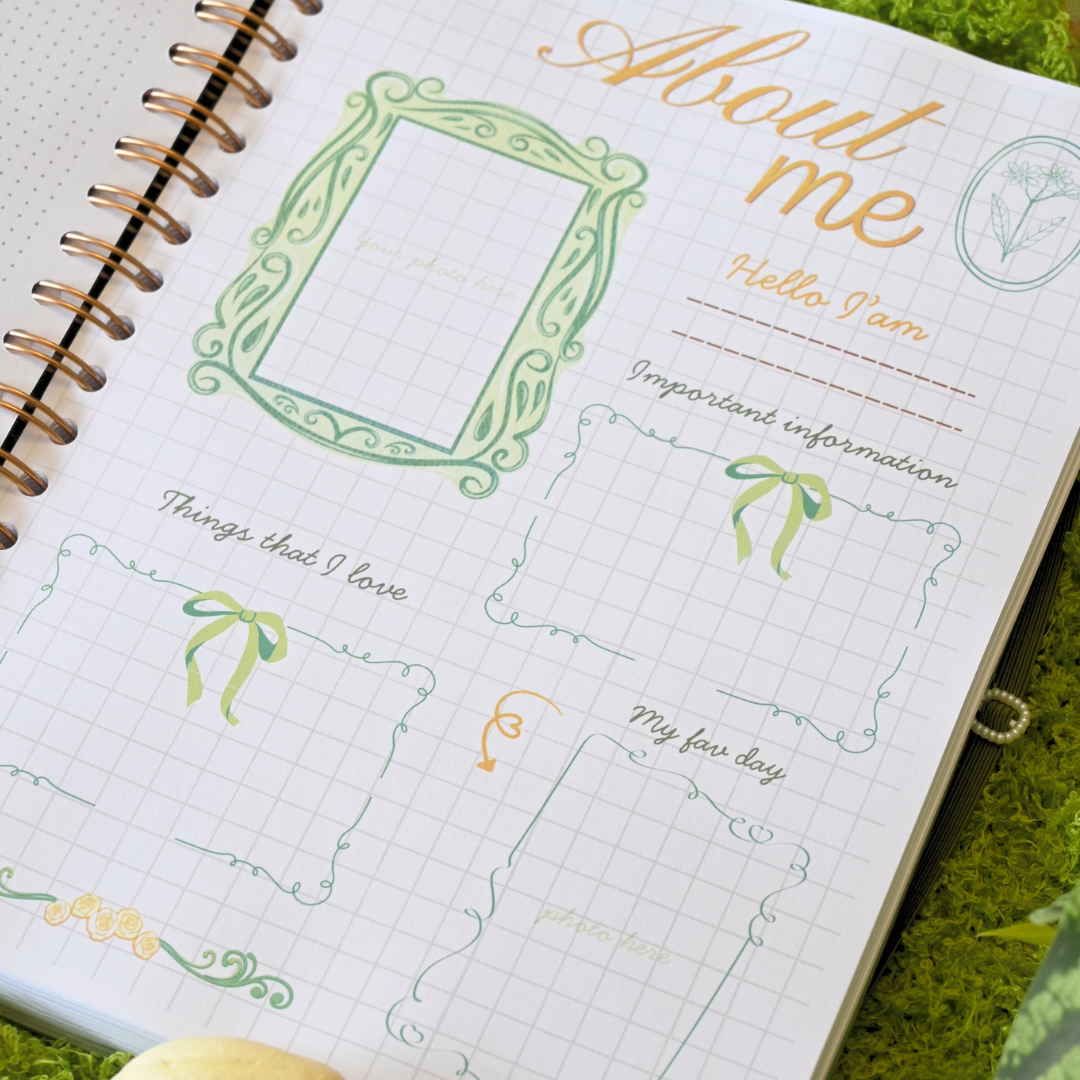 About
me
Your photo here
Hello I'am
Important information
Things that I love
My fav day
photo here